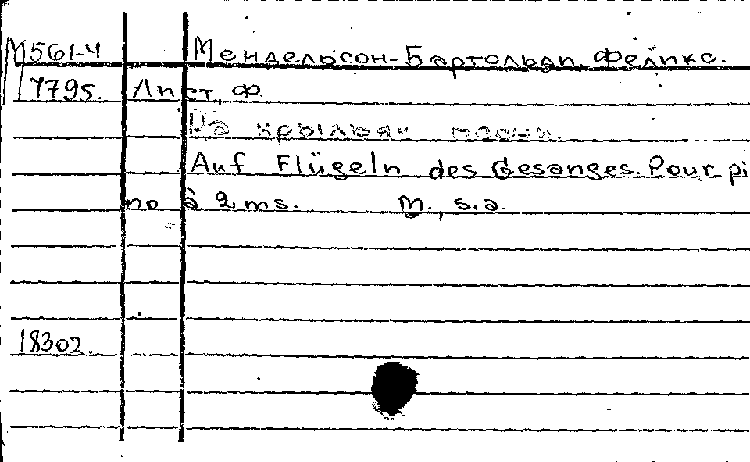 М561-4 Мендельсон-Бартольди, Феликс.
7795. Лист, Ф.
На крыльях песни.
Auf Flügeln des Gesanges. Pour pi
no à 2 ms. М., s.a.
18302